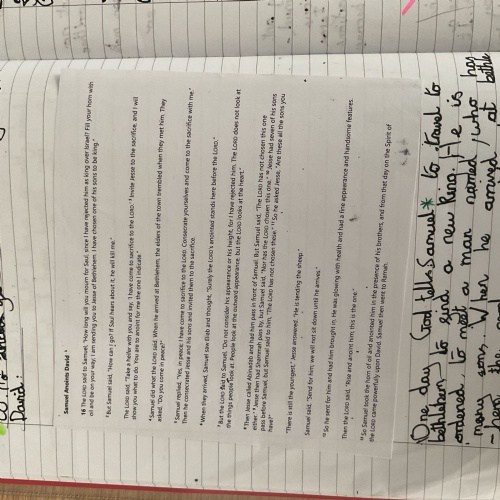 David:
Samuel Anoints David
16 The LORD said to Samuel, "How long will you mourn for Saul, since I have rejected him as king over Israel? Fill your horn with
oil and be on your way; I am sending you to Jesse of Bethlehem. I have chosen one of his sons to be king."
2 But Samuel said, "How can I go? If Saul hears about it, he will kill me."
The LORD said, "Take a heifer with you and say, 'I have come to sacrifice to the LORD.' 3 Invite Jesse to the sacrifice, and I will
show you what to do. You are to anoint for me the one I indicate."
4 Samuel did what the LORD said. When he arrived at Bethlehem, the elders of the town trembled when they met him. They
asked, "Do you come in peace?"
5 Samuel replied, "Yes, in peace; I have come to sacrifice to the LORD. Consecrate yourselves and come to the sacrifice with me."
Then he consecrated Jesse and his sons and invited them to the sacrifice.
6 When they arrived, Samuel saw Eliab and thought, "Surely the LORD's anointed stands here before the LORD."
7 But the LORD said to Samuel, "Do not consider his appearance or his height, for I have rejected him. The LORD does not look at
the things people look at. People look at the outward appearance, but the LORD looks at the heart."
8 Then Jesse called Abinadab and had him pass in front of Samuel. But Samuel said, "The LORD has not chosen this one
either." 9 Jesse then had Shammah pass by, but Samuel said, "Nor has the LORD chosen this one." 10 Jesse had seven of his sons
pass before Samuel, but Samuel said to him, "The LORD has not chosen these." 11 So he asked Jesse, "Are these all the sons you
have?"
"There is still the youngest," Jesse answered. "He is tending the sheep."
Samuel said, "Send for him; we will not sit down until he arrives."
12 So he sent for him and had him brought in. He was glowing with health and had a fine appearance and handsome features.
Then the LORD said, "Rise and anoint him; this is the one."
13 So Samuel took the horn of oil and anointed him in the presence of his brothers, and from that day on the Spirit of
the LORD came powerfully upon David. Samuel then went to Ramah.
One day God tells Samuel* to travel to
bethlehem to find a new King. He is
ordered to meet a man named / who has
many sons. When he arrived at bethle
-hem the